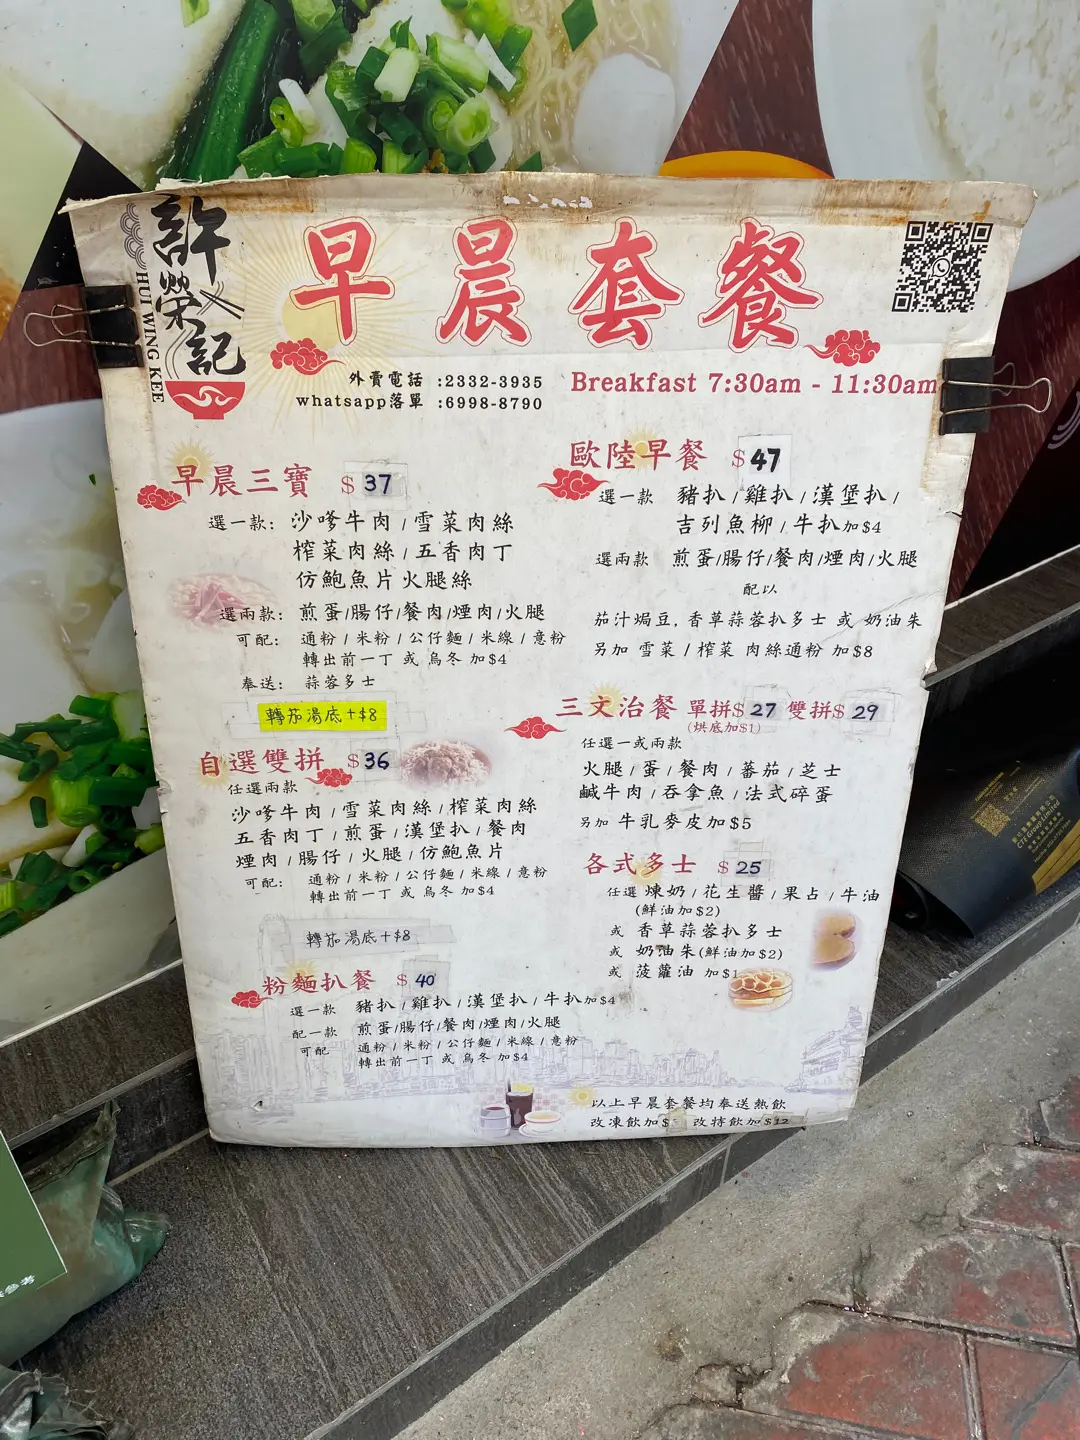 許榮記
HUI WING KEE
早晨套餐
外賣電話 :2332-3935
whatsapp落單 :6998-8790
Breakfast 7:30am - 11:30am
早晨三寶 $37
選一款: 沙嗲牛肉 / 雪菜肉絲
榨菜肉絲 / 五香肉丁
仿鮑魚片火腿絲
選兩款: 煎蛋/腸仔/餐肉/煙肉/火腿
可配: 通粉 / 米粉 / 公仔麵 / 米線 / 意粉
轉出前一丁 或 烏冬 加$4
奉送: 蒜蓉多士
轉茄湯底+$8
自選雙拼 $36
任選兩款
沙嗲牛肉 / 雪菜肉絲 / 榨菜肉絲
五香肉丁 / 煎蛋 / 漢堡扒 / 餐肉
煙肉 / 腸仔 / 火腿 / 仿鮑魚片
可配: 通粉 / 米粉 / 公仔麵 / 米線 / 意粉
轉出前一丁 或 烏冬 加$4
轉茄湯底+$8
粉麵扒餐 $40
選一款 豬扒 / 雞扒 / 漢堡扒 / 牛扒加$4
配一款 煎蛋/腸仔/餐肉/煙肉/火腿
可配 通粉 / 米粉 / 公仔麵 / 米線 / 意粉
轉出前一丁 或 烏冬 加$4
歐陸早餐 $47
選一款 豬扒 / 雞扒 / 漢堡扒 /
吉列魚柳 / 牛扒加$4
選兩款 煎蛋/腸仔/餐肉/煙肉/火腿
配以
茄汁焗豆, 香草蒜蓉扒多士 或 奶油朱
另加 雪菜 / 榨菜 肉絲通粉 加$8
三文治餐 單拼$27 雙拼$29
(烘底加$1)
任選一或兩款
火腿 / 蛋 / 餐肉 / 蕃茄 / 芝士
鹹牛肉 / 吞拿魚 / 法式碎蛋
另加 牛乳麥皮加$5
各式多士 $25
任選 煉奶 / 花生醬 / 果占 / 牛油
(鮮油加$2)
或 香草蒜蓉扒多士
或 奶油朱(鮮油加$2)
或 菠蘿油 加$1
以上早晨套餐均奉送熱飲
改凍飲加$ 改特飲加$12